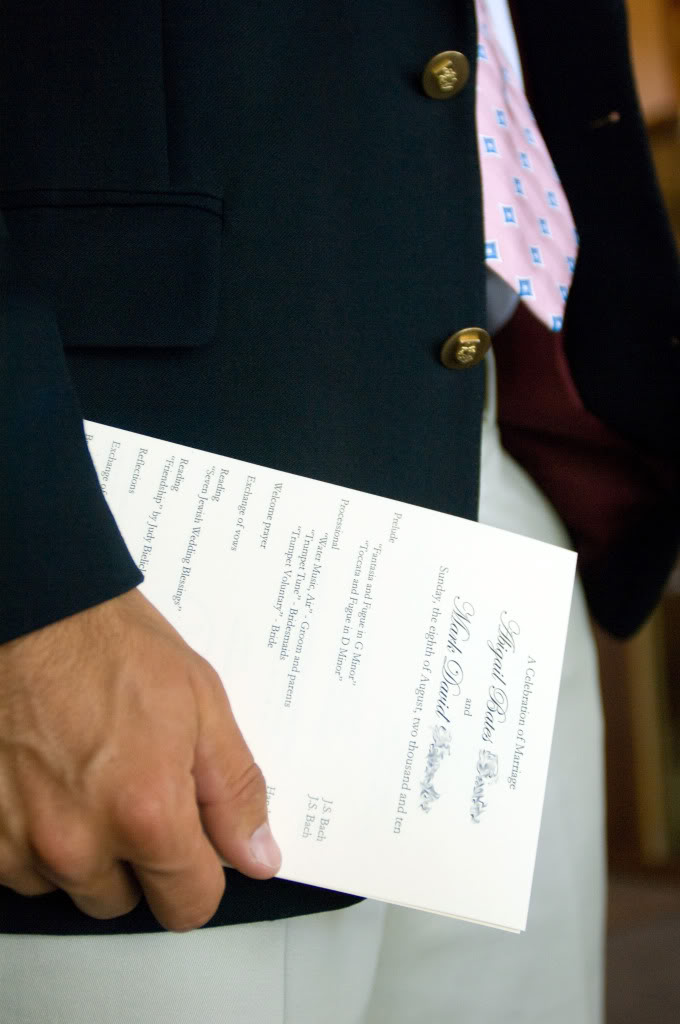 A Celebration of Marriage
Abigail Bates
and
Mark David
Sunday, the eighth of August, two thousand and ten
Prelude
"Fantasia and Fugue in G Minor" J.S. Bach
"Toccata and Fugue in D Minor" J.S. Bach
Processional
"Water Music, Air" - Groom and parents
"Trumpet Tune" - Bridesmaids
"Trumpet Voluntary" - Bride
Welcome prayer
Exchange of vows
Reading
"Seven Jewish Wedding Blessings"
Reading
"Friendship" by Judy
Reflections
Exchange of